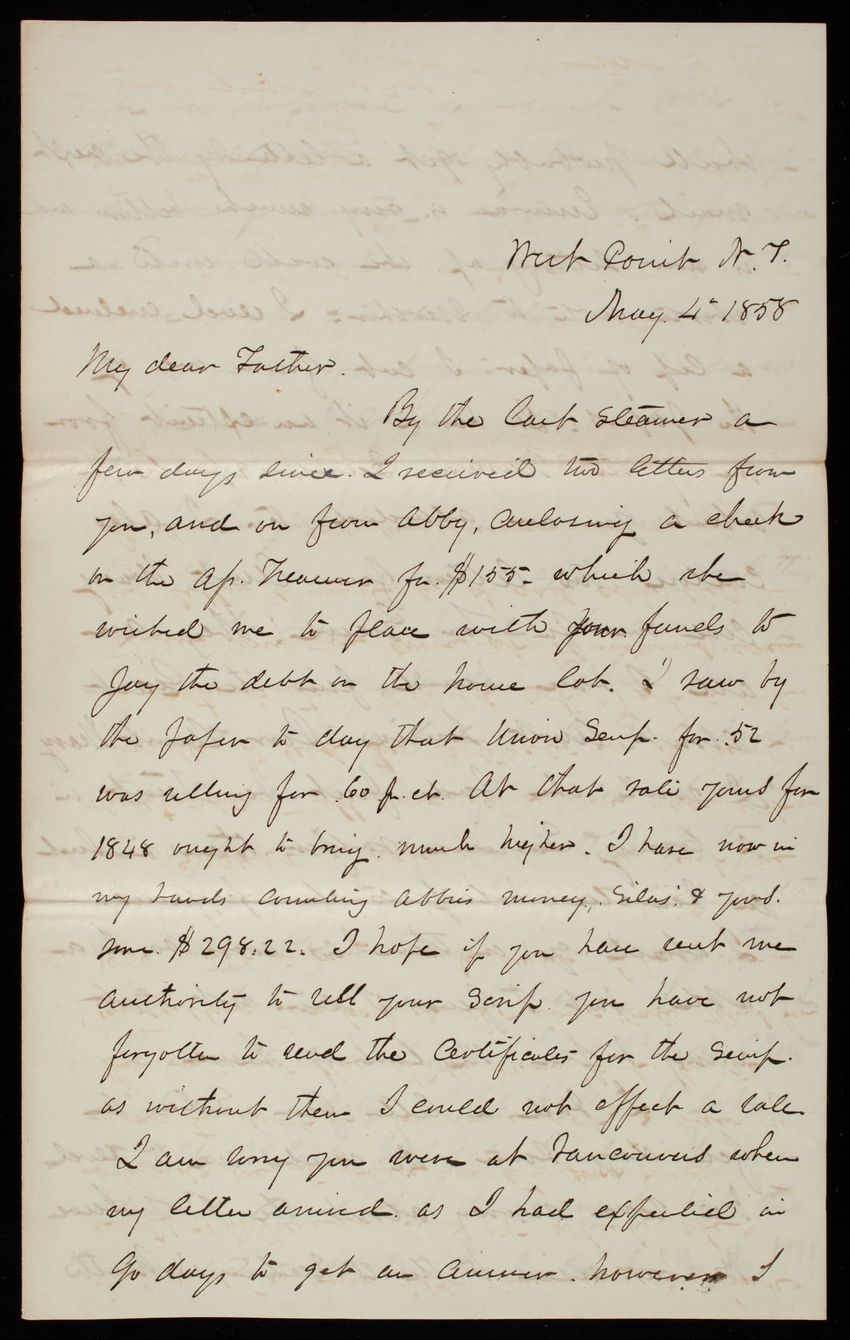 West Point N.Y.
May. 4" 1858
My dear Father.
By the last steamer a
few days since. I received two letters from
you, and on from Abby, enclosing a check
on the Ap. Treasurer for. $155- which she
wished me to place with your funds to
pay the debt on the home lot. I saw by
the paper to day that Union Scrip. for .52
was selling for .60 p. ct. At that rate yours for
1848 ought to bring. much higher. I have now in
my hands counting Abbies money, Silas', & yours.
some. $298.22. I hope if you have sent me
authority to sell your Scrip. you have not
forgotten to send the Certificates for the Scrip.
as without them I could not effect a sale
I am sorry you were at Vancouvers when
my letter arrived. as I had expected in
90 days to get an answer. however I